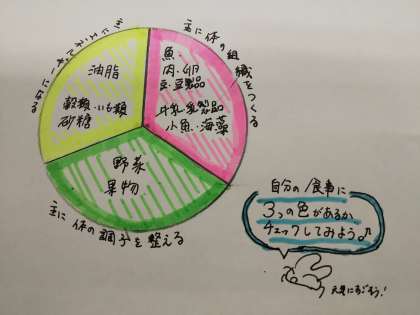 主にエネルギーになる
油脂
穀類・いも類
砂糖
主に体の組織をつくる
魚
肉・卵
豆・豆製品
牛乳・乳製品
小魚・海藻
野菜
果物
主に体の調子を整える
自分の食事に
3つの色があるか
チェックしてみよう♪